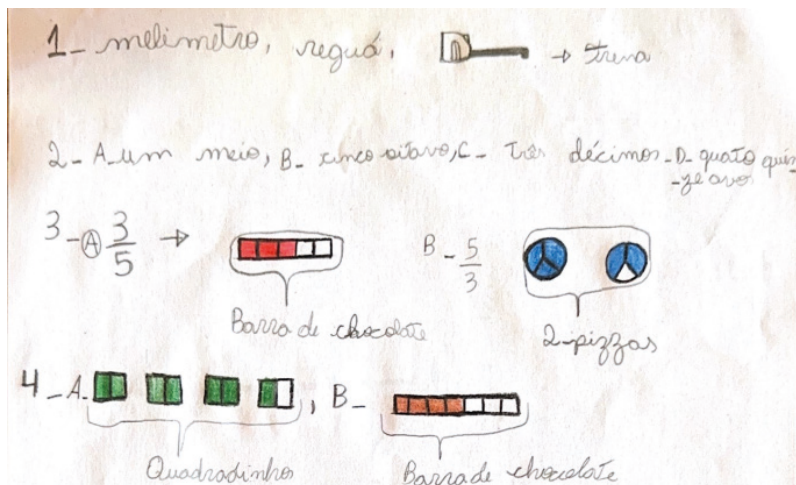 1- melimetro, reguá, → trena
2- A- um meio, B- cinco oitavo, C- três décimos - D- quato quin-
-ze avos
3- A 3/5 → B - 5/3
Barra de chocolate 2-pizzas
4- A. , B-
Quadradinhos Barra de chocolate